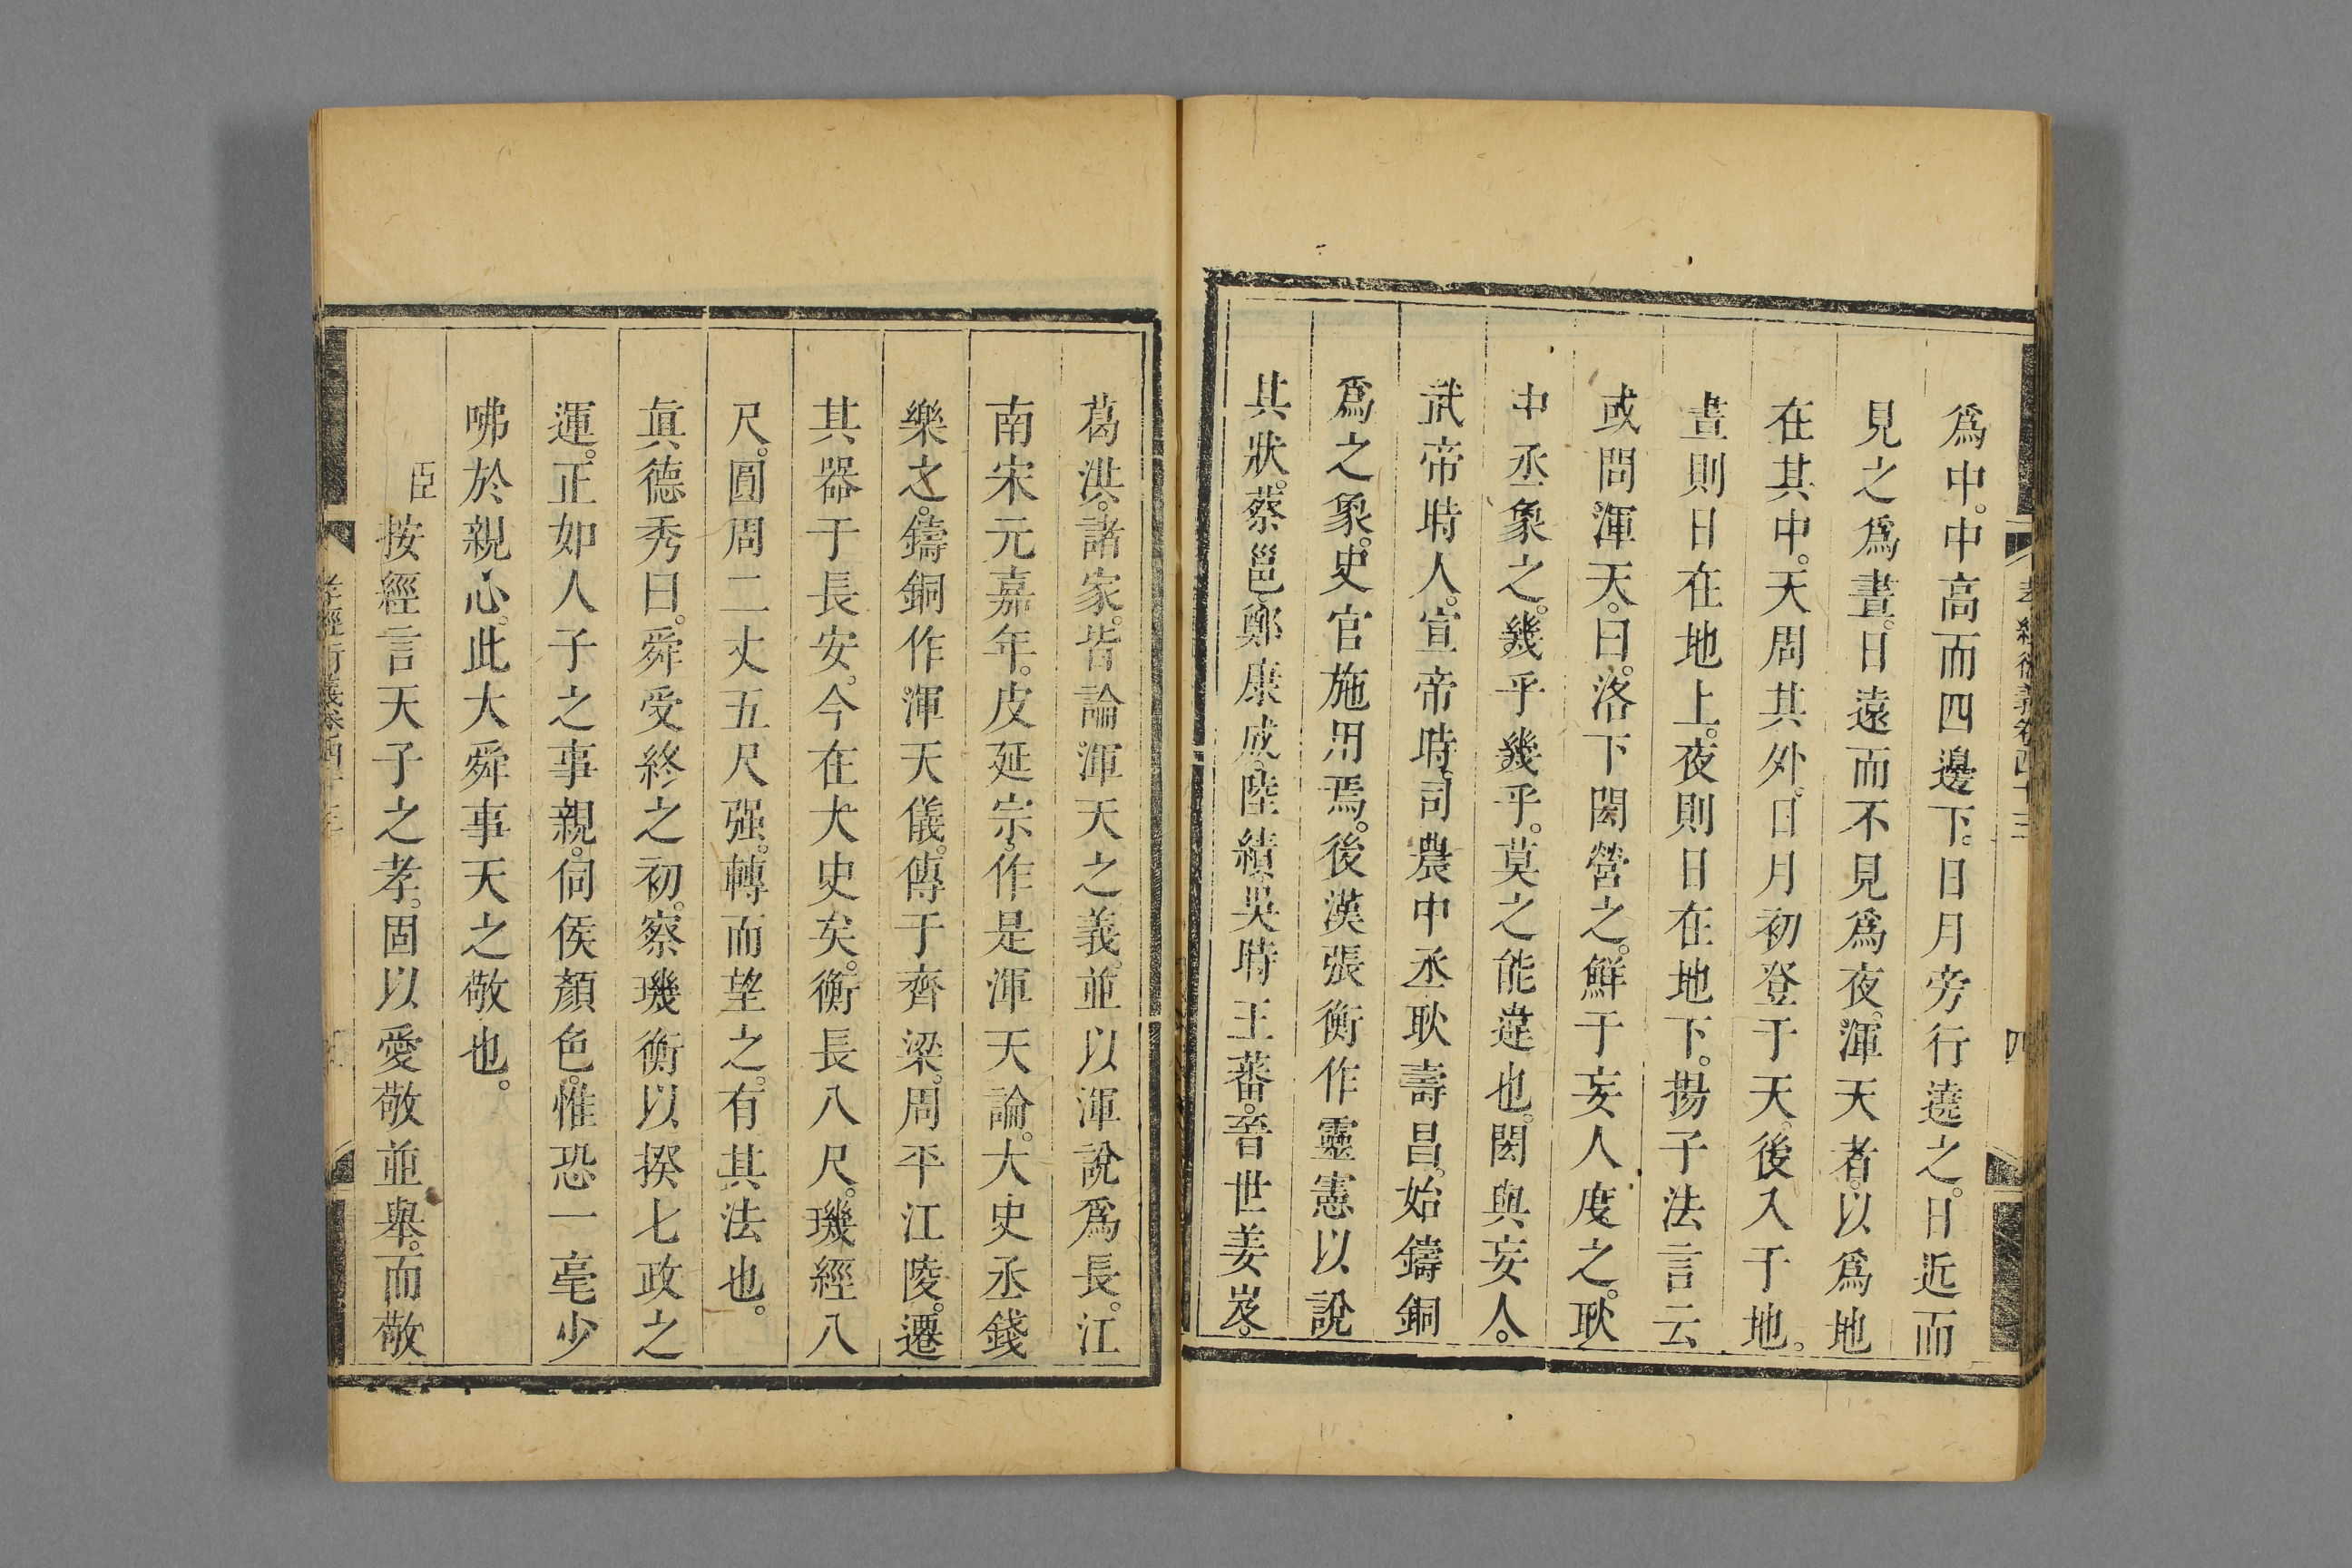 孝經衍義卷四十三
四
爲中。中高而四邊下。日月旁行遶之。日近而
見之爲晝。日遠而不見爲夜。渾天者。以爲地
在其中。天周其外。日月初登于天。後入于地。
晝則日在地上。夜則日在地下。揚子法言云
或問渾天。曰。洛下閎營之。鮮于妄人度之。耿
中丞象之。幾乎幾乎。莫之能違也。閎與妄人。
武帝時人。宣帝時。司農中丞耿壽昌。始鑄銅
爲之象。史官施用焉。後漢張衡作靈憲以說
其狀。蔡邕。鄭康成。陸績。吳時王蕃。晉世姜岌。
葛洪。諸家。皆論渾天之義。並以渾說爲長。江
南宋元嘉年。皮延宗。作是渾天論。大史丞錢
樂之。鑄銅作渾天儀。傳于齊梁。周平江陵。遷
其器于長安。今在大史矣。衡長八尺。璣經八
尺。圓周二丈五尺强。轉而望之。有其法也。
眞德秀曰。舜受終之初。察璣衡以揆七政之
運。正如人子之事親。伺候顏色。惟恐一毫少
咈於親心。此大舜事天之敬也。
臣按經言天子之孝。固以愛敬並舉。而敬
孝經衍義卷四十三